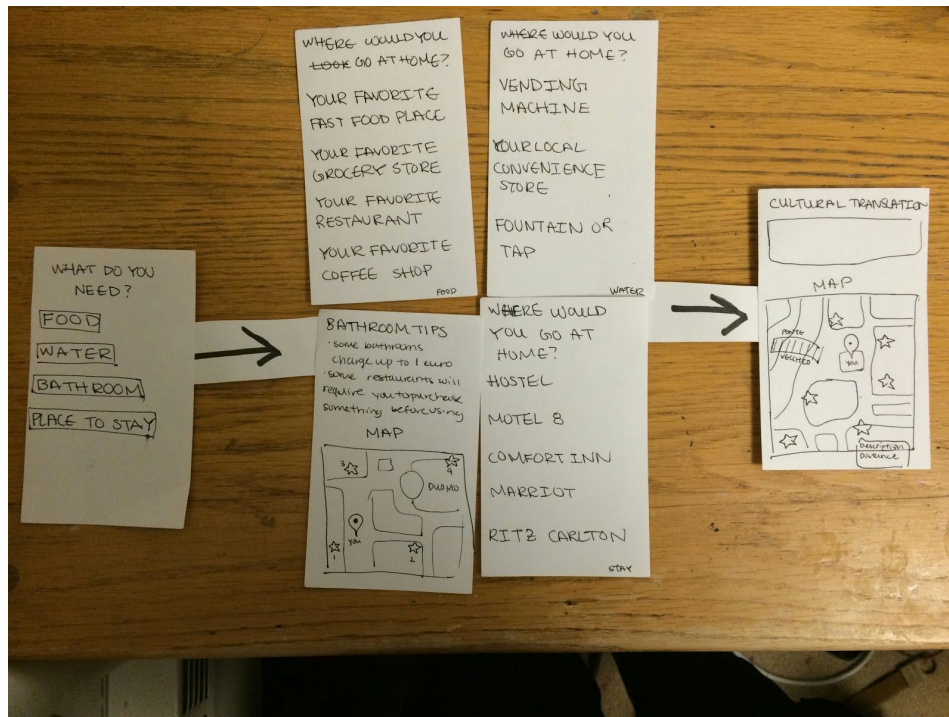 WHAT DO YOU
NEED?
FOOD
WATER
BATHROOM
PLACE TO STAY
WHERE WOULD YOU
LOOK GO AT HOME?
YOUR FAVORITE
FAST FOOD PLACE
YOUR FAVORITE
GROCERY STORE
YOUR FAVORITE
RESTAURANT
YOUR FAVORITE
COFFEE SHOP
FOOD
WHERE WOULD YOU
GO AT HOME?
VENDING
MACHINE
YOUR LOCAL
CONVENIENCE
STORE
FOUNTAIN OR
TAP
WATER
BATHROOM TIPS
· some bathrooms
charge up to 1 euro
· some restaurants will
require you to purchase
something before using
MAP
3
4
DUOMO
you
1
2
WHERE WOULD
YOU GO AT
HOME?
HOSTEL
MOTEL 8
COMFORT INN
MARRIOT
RITZ CARLTON
STAY
CULTURAL TRANSLATION
MAP
PONTE
VECCHIO
YOU
Description
Distance